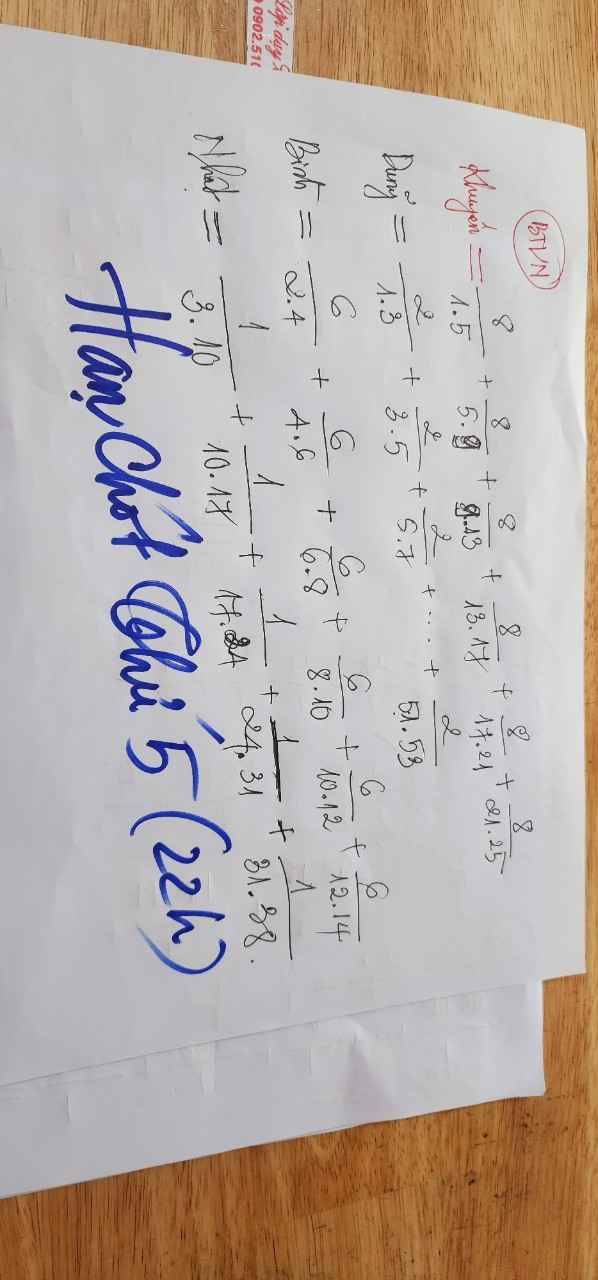 BTVN
Khuyến = 8/1.5 + 8/5.9 + 8/9.13 + 8/13.17 + 8/17.21 + 8/21.25
Dũng = 2/1.3 + 2/3.5 + 2/5.7 + ... + 2/51.53
Bình = 6/2.4 + 6/4.6 + 6/6.8 + 6/8.10 + 6/10.12 + 6/12.14
Nhật = 1/3.10 + 1/10.17 + 1/17.24 + 1/24.31 + 1/31.38.
Hạn Chót Thứ 5 (22h)
0902.51